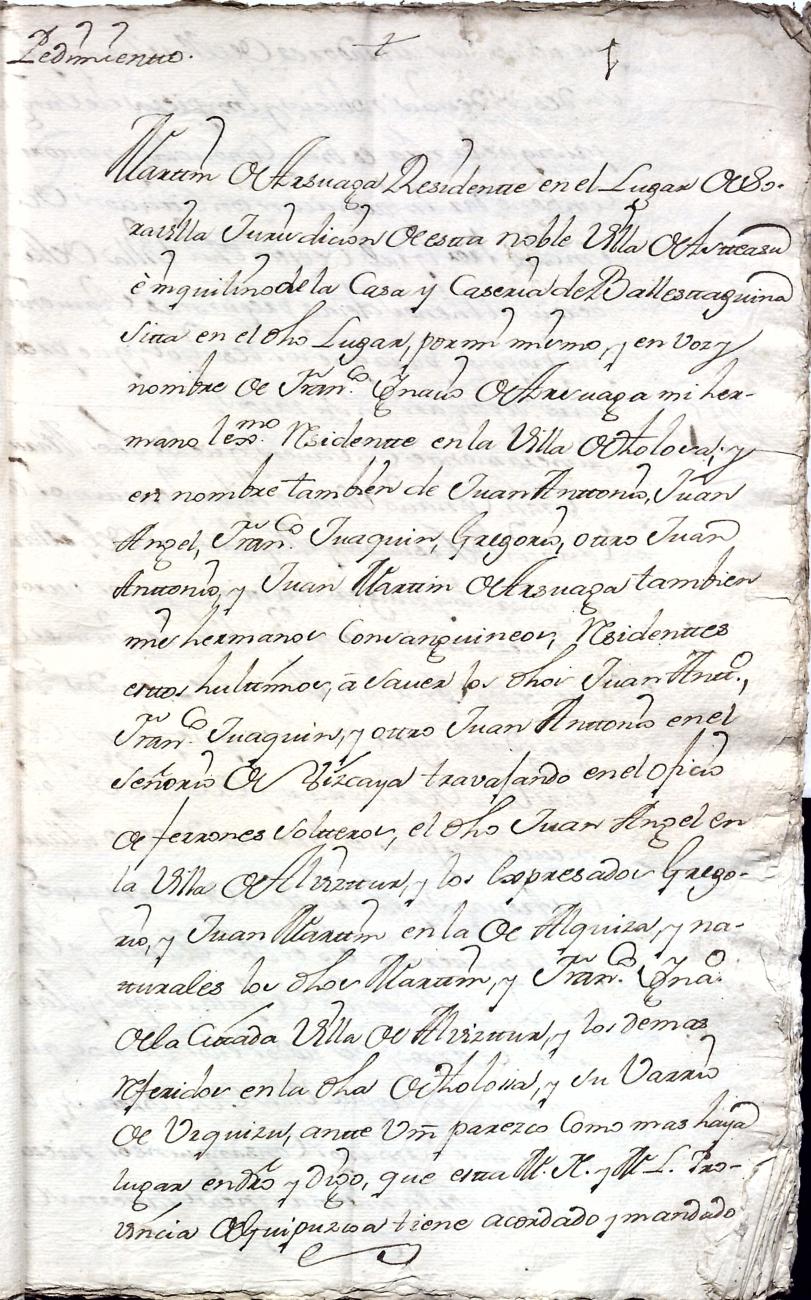 Pedimientto.
1
Martin de Arsuaga Residentte en el Lugar de So-
ravilla Jurisdicion de estta noble Villa de Astteasu
è inquilino de la Casa y Caseria de Ballesttaguina
sitta en el dho Lugar, por mi mismo, y en voz y
nombre de Fran.co Ignacio de Arsuaga mi her-
mano lexmo. Residentte en la Villa de Tholosa, y
en nombre tambien de Juan Anttonio, Juan
Angel, Fran.co Juaquin, Gregorio, ottro Juan
Anttonio, y Juan Martin de Arsuaga tambien
mis hermanos Consanguineos, Residenttes
esttos hulttimos, à saver los dhos Juan Antt.o,
Fran.co Juaquin, y ottro Juan Anttonio en el
señorio de Vizcaya travajando en el oficio
de ferrones soltteros, el dho Juan Angel en
la Villa de Alvizttur, y los Expresados Grego-
rio, y Juan Marttin en la de Alquiza, y na-
tturales los dhos Marttin, y Fran.co Igna.o
de la Cittada Villa de Alvizttur, y los demas
referidos en la dha de Tholossa, y su Varrio
de Urquizu, antte Vm parezco Como mas haya
lugar en dro y digo, que estta M. N. y M. L. Pro-
vincia de Guipuzcoa tiene acordado y mandado